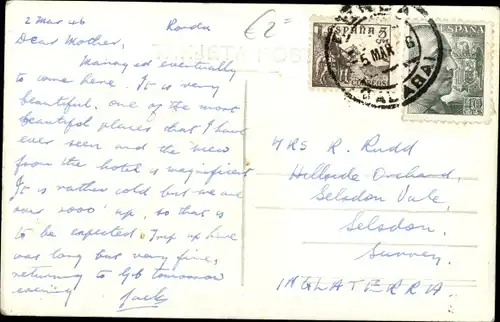 2 Mar 46 Ronda
Dear Mother,
Managed eventually
to come here. It is very
beautiful, one of the most
beautiful places that I have
ever seen and the view
from the hotel is magnificent
It is rather cold but we are
over 2000' up, so that is
to be expected. Trip up here
was long but very fine,
returning to Gib tomorrow
evening Jack
£2=
ESPAÑA 5
CORREOS
5 MAR 46
ESPAÑA
40
MRS R. Rudd
Hillside Orchard,
Selsdon Vale,
Selsdon,
Surrey.
INGLATERRA.